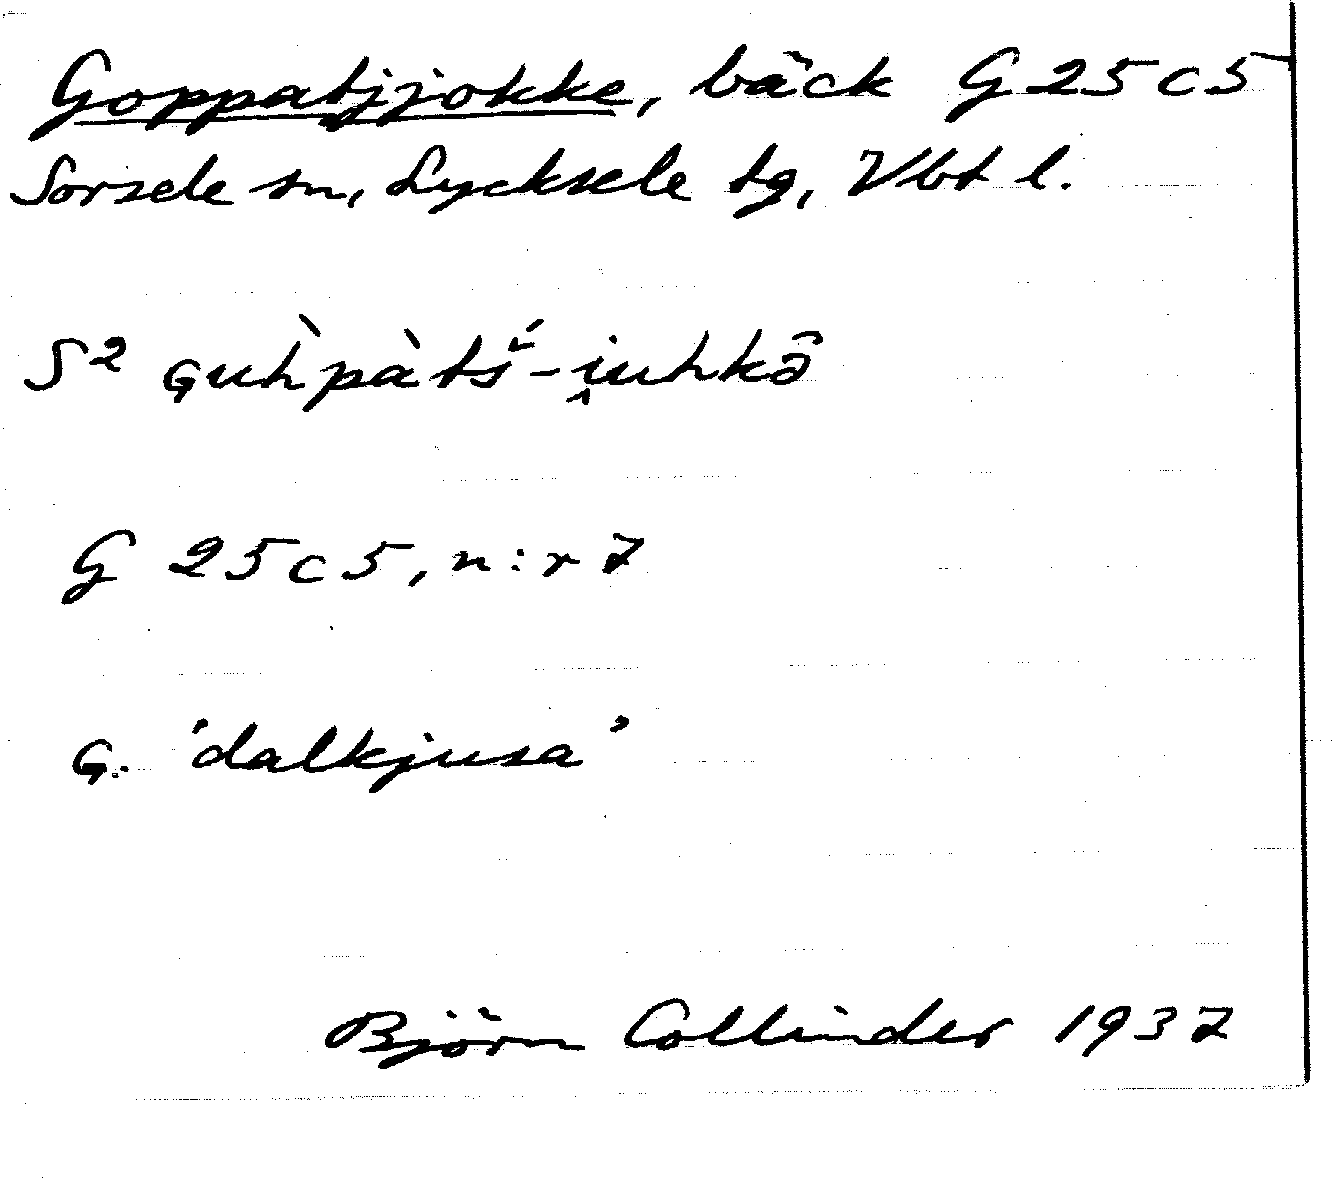 Goppatjjokke, bäck G 25 c 5
Sorsele sn, Lycksele tg, Vbt l.
S² ɢuh̀pàtš́-i̯uhkô
G 25 c 5, n:r 7
G. 'dalkjusa'
Björn Collinder 1937